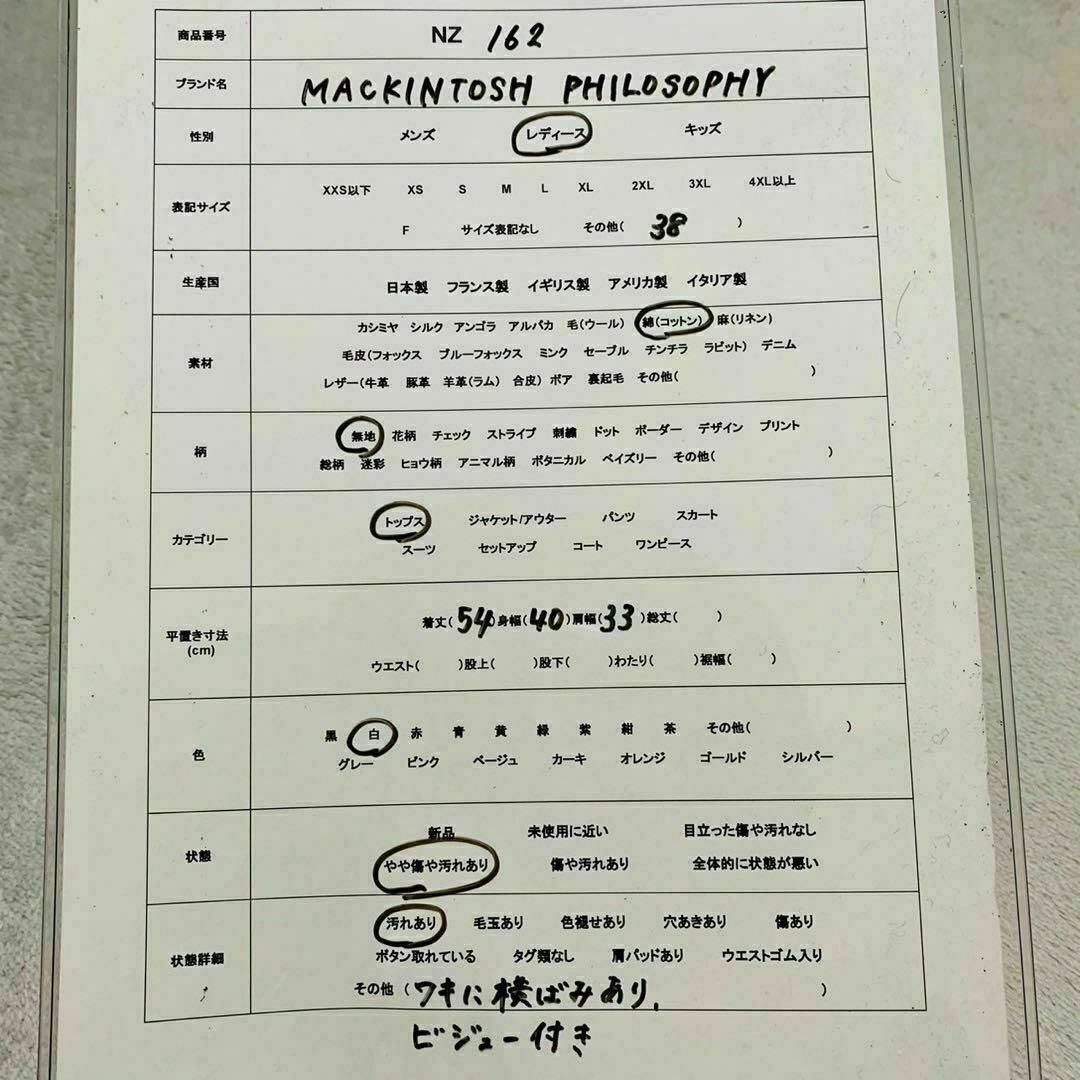 商品番号 NZ 162
ブランド名 MACKINTOSH PHILOSOPHY
性別 メンズ レディース キッズ
表記サイズ
XXS以下 XS S M L XL 2XL 3XL 4XL以上
F サイズ表記なし その他( 38 )
生産国 日本製 フランス製 イギリス製 アメリカ製 イタリア製
素材
カシミヤ シルク アンゴラ アルパカ 毛(ウール) 綿(コットン) 麻(リネン)
毛皮(フォックス ブルーフォックス ミンク セーブル チンチラ ラビット) デニム
レザー(牛革 豚革 羊革(ラム) 合皮) ボア 裏起毛 その他( )
柄
無地 花柄 チェック ストライプ 刺繍 ドット ボーダー デザイン プリント
総柄 迷彩 ヒョウ柄 アニマル柄 ボタニカル ペイズリー その他( )
カテゴリー
トップス ジャケット/アウター パンツ スカート
スーツ セットアップ コート ワンピース
平置き寸法
(cm)
着丈(54)身幅(40)肩幅(33)総丈( )
ウエスト( )股上( )股下( )わたり( )裾幅( )
色
黒 白 赤 青 黄 緑 紫 紺 茶 その他( )
グレー ピンク ベージュ カーキ オレンジ ゴールド シルバー
状態
新品 未使用に近い 目立った傷や汚れなし
やや傷や汚れあり 傷や汚れあり 全体的に状態が悪い
状態詳細
汚れあり 毛玉あり 色褪せあり 穴あきあり 傷あり
ボタン取れている タグ類なし 肩パッドあり ウエストゴム入り
その他 (ワキに横ばみあり. )
ビジュー付き